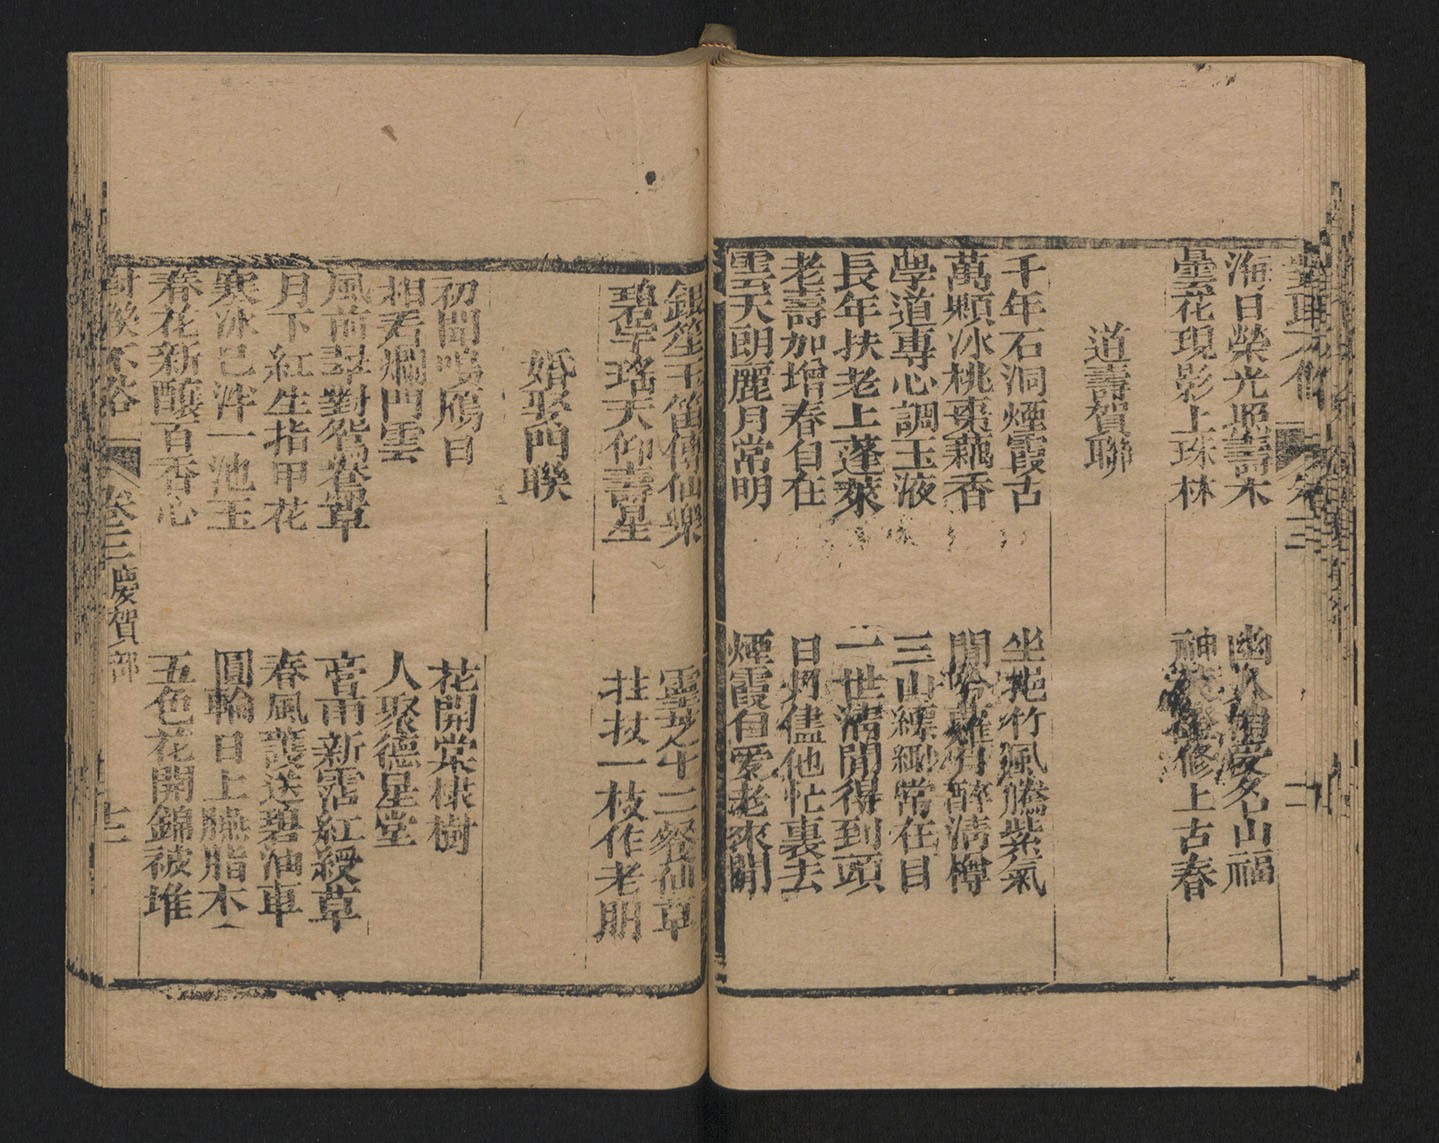 海日榮光照壽木
幽人自愛名山福
曇花現影上珠林
修上古春
道壽賀聯
千年石洞煙霞古
坐花竹風騰紫氣
萬顆冰桃棗藕香
閒清樽
學道專心調玉液
三山縹緲常在目
長年扶老上蓬萊
一世清閒得到頭
老壽加增春自在
日月儘他忙裏去
雲天朗麗月常明
煙霞自愛老來閒
銀笙玉笛傳仙樂
靈芝午二餐仙草
碧宇瑤天仰壽星
拄杖一枝作老朋
婚娶門聯
初聞鳴鴈日
花開棠棣樹
相看爛門雲
人聚德星堂
風前翠對鴛鴦草
宵雨新霑紅綬草
月下紅生指甲花
春風護送碧油車
寒冰已泮一池玉
圓輪日上臙脂木
春花新釀百香心
五色花開錦被堆
對聯不俗
卷三 慶賀部
十二